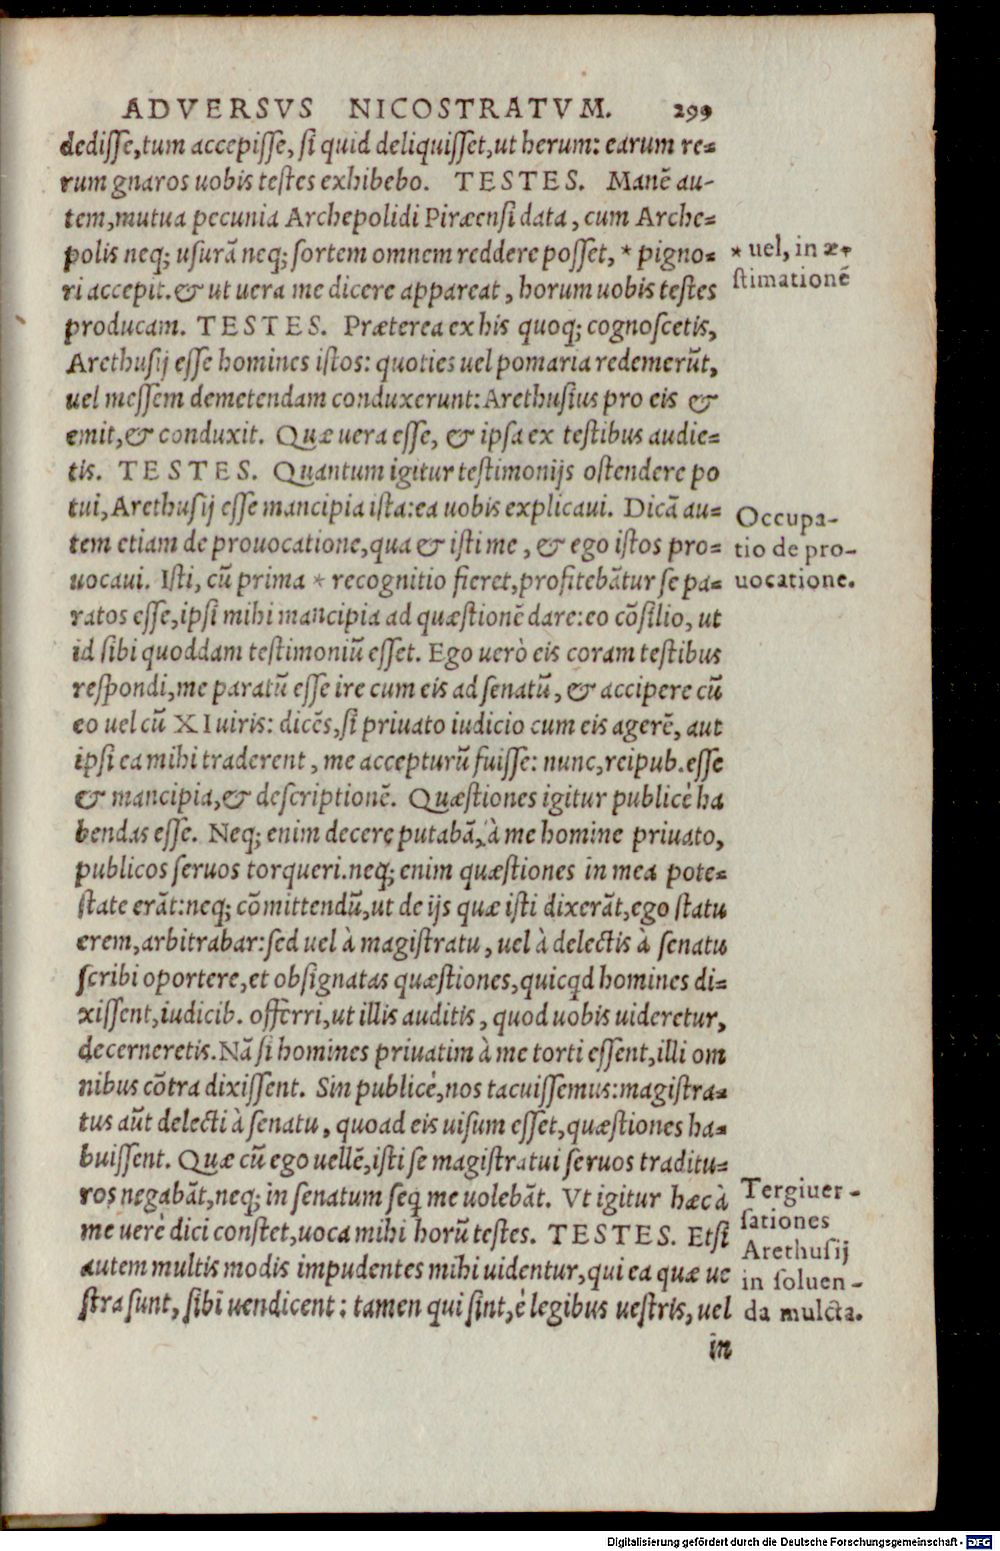 ADVERSVS NICOSTRATVM. 299
dedisse, tum accepisse, si quid deliquisset, ut herum: earum re-
rum gnaros uobis testes exhibebo. TESTES. Manẽ au-
tem, mutua pecunia Archepolidi Piræensi data, cum Arche-
polis neq; usurã neq; sortem omnem reddere posset, * pigno-
ri accepit. & ut uera me dicere appareat, horum uobis testes
producam. TESTES. Præterea ex his quoq; cognoscetis,
Arethusij esse homines istos: quoties uel pomaria redemerũt,
uel messem demetendam conduxerunt: Arethusius pro eis &
emit, & conduxit. Quæ uera esse, & ipsa ex testibus audie-
tis. TESTES. Quantum igitur testimonijs ostendere po
tui, Arethusij esse mancipia ista: ea uobis explicaui. Dicã au-
tem etiam de prouocatione, qua & isti me, & ego istos pro-
uocaui. Isti, cũ prima * recognitio fieret, profitebãtur se pa-
ratos esse, ipsi mihi mancipia ad quæstionẽ dare: eo cõsilio, ut
id sibi quoddam testimoniũ esset. Ego uerò eis coram testibus
respondi, me paratũ esse ire cum eis ad senatũ, & accipere cũ
eo uel cũ XI uiris: dicẽs, si priuato iudicio cum eis agerẽ, aut
ipsi ea mihi traderent, me accepturũ fuisse: nunc, reipub. esse
& mancipia, & descriptionẽ. Quæstiones igitur publicè ha
bendas esse. Neq; enim decere putabã, à me homine priuato,
publicos seruos torqueri. neq; enim quæstiones in mea pote-
state erãt: neq; cõmittendũ, ut de ijs quæ isti dixerãt, ego statu
erem, arbitrabar: sed uel à magistratu, uel à delectis à senatu
scribi oportere, et obsignatas quæstiones, quicqd homines di-
xissent, iudicib. offerri, ut illis auditis, quod uobis uideretur,
decerneretis. Nã si homines priuatim à me torti essent, illi om
nibus cõtra dixissent. Sin publicè, nos tacuissemus: magistra-
tus aũt delecti à senatu, quoad eis uisum esset, quæstiones ha-
buissent. Quæ cũ ego uellẽ, isti se magistratui seruos traditu-
ros negabãt, neq; in senatum seq me uolebãt. Vt igitur hæc à
me uerè dici constet, uoca mihi horũ testes. TESTES. Etsi
autem multis modis impudentes mihi uidentur, qui ea quæ ue
stra sunt, sibi uendicent: tamen qui sint, è legibus uestris, uel
in
* uel, in æ-
stimationẽ
Occupa-
tio de pro-
uocatione.
Tergiuer-
sationes
Arethusij
in soluen-
da mulcta.
Digitalisierung gefördert durch die Deutsche Forschungsgemeinschaft - DFG